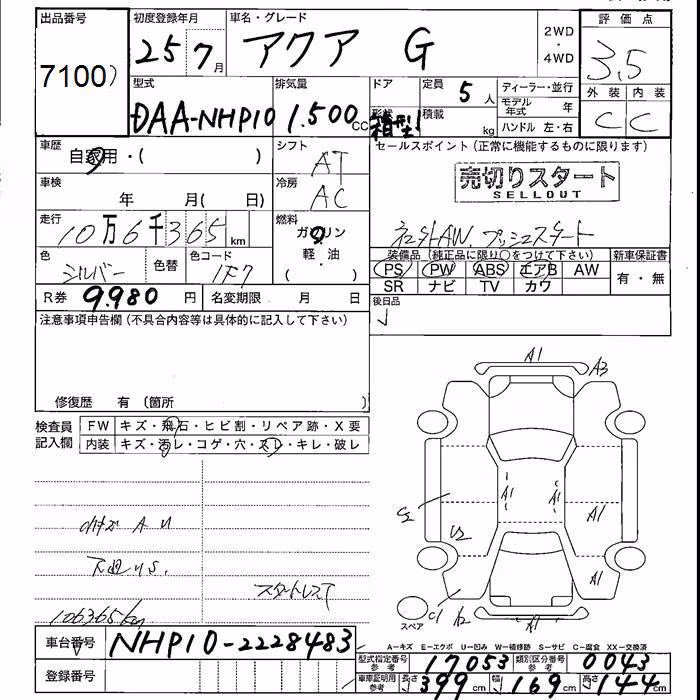 出品番号 初度登録年月 車名・グレード 2WD・4WD 評価点
7100) 25 7月 アクア G 3.5
外装 内装
C C
型式 排気量 ドア 定員 ディーラー・並行
DAA-NHP10 1.500cc 形状 箱型 5人 積載 kg モデル年式 年
ハンドル 左・右
車歴 シフト セールスポイント(正常に機能するものに限ります)
自家用・( ) AT
売切りスタート
SELLOUT
車検 冷房
年 月( 日) AC
走行 燃料
10万6千365km ガソリン
軽・油
( )
AW. プッシュスタート
色 色替 色コード
シルバー 1F7
装備品(純正品に限り○をつけて下さい) 新車保証書
PS PW ABS エアB AW 有・無
SR ナビ TV カワ
R券 9.980円 名変期限 月 日
後日品
注意事項申告欄(不具合内容等は具体的に記入して下さい)
修復歴 有(箇所 )
検査員記入欄
FW キズ・飛石・ヒビ割・リペア跡・X要
内装 キズ・汚レ・コゲ・穴・スレ・キレ・破レ
A1 A3
A1 A1
A1
A1
A1
スタートレスT
106365km
スペア
A-キズ E-エクボ U-凹み W-補修跡 S-サビ C-腐食 XX-交換済
車台番号 NHP10-2228483
登録番号
型式指定番号 参考 17053 類別区分番号 参考 0043
車庫証明用 参考 長さ 399cm 幅 169cm 高さ 144cm